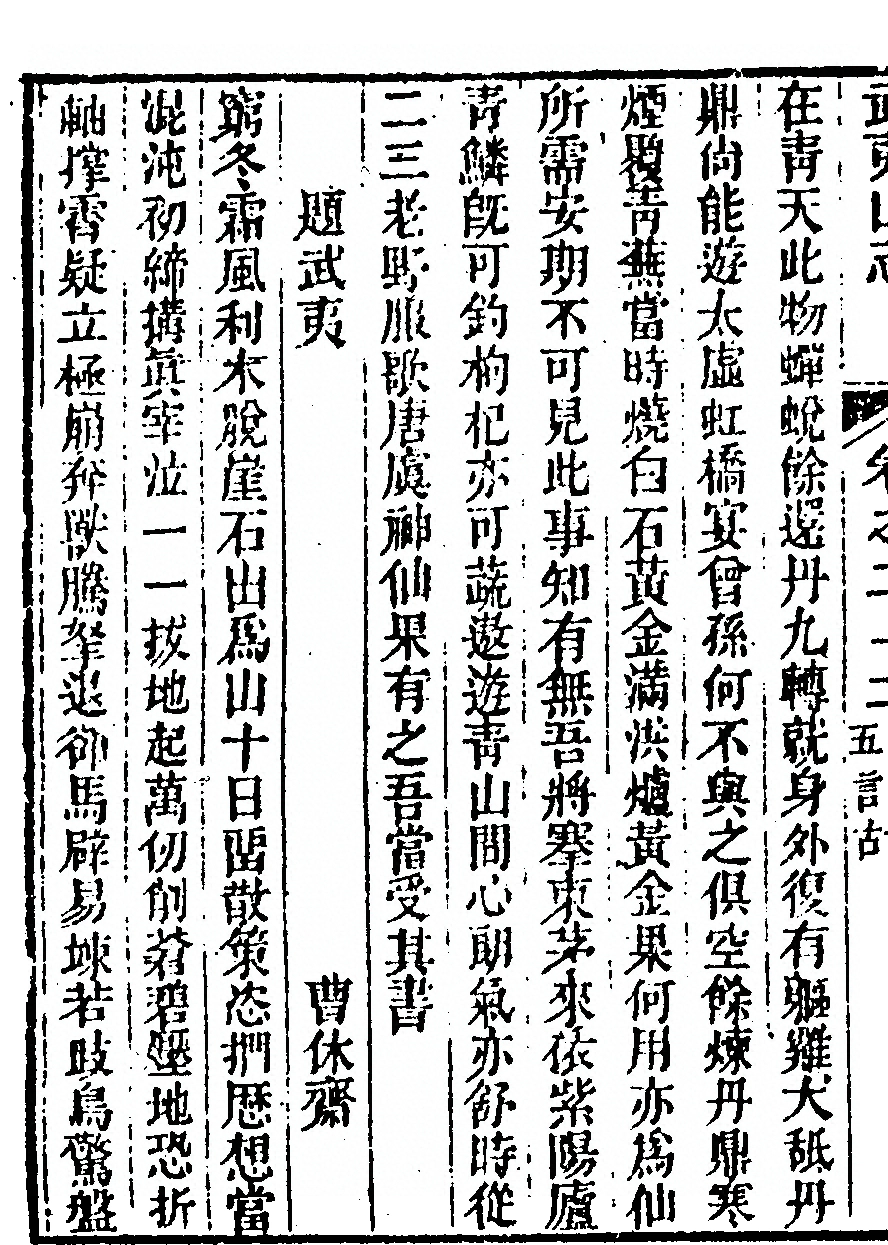 武夷山志 卷之二十二 五言古
在靑天此物蟬蛻餘還丹九轉就身外復有軀雞犬舐丹
鼎尙能遊太虛虹橋宴曾孫何不與之俱空餘煉丹鼎寒
煙覆靑蕪當時燒白石黃金滿洪爐黃金果何用亦爲仙
所需安期不可見此事知有無吾將搴束茅來依紫陽廬
靑鱗旣可釣枸杞亦可蔬遨遊靑山間心朗氣亦舒時從
二三老野服歌唐虞神仙果有之吾當受其書
題武夷 曹休齋
窮冬霜風利木脫崖石出爲山十日留散策恣捫歷想當
混沌初締搆眞宰泣一一拔地起萬仞削蒼碧墜地恐折
軸撑霄疑立極崩奔獸騰拏退卻馬辟易竦若跂鳥驚盤